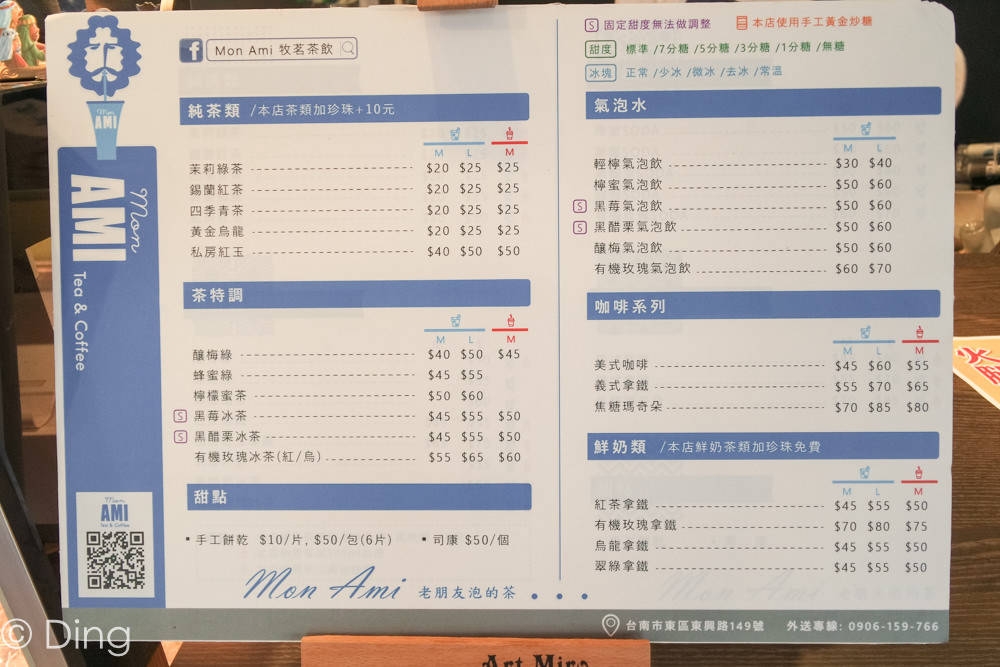 Mon
AMI
Mon
AMI
Tea & Coffee
Mon
AMI
Tea & Coffee
f Mon Ami 牧茗茶飲
純茶類 /本店茶類加珍珠+10元
M L M
茉莉綠茶 $20 $25 $25
錫蘭紅茶 $20 $25 $25
四季青茶 $20 $25 $25
黃金烏龍 $20 $25 $25
私房紅玉 $40 $50 $50
茶特調
M L M
釀梅綠 $40 $50 $45
蜂蜜綠 $45 $55
檸檬蜜茶 $50 $60
S 黑莓冰茶 $45 $55 $50
S 黑醋栗冰茶 $45 $55 $50
有機玫瑰冰茶(紅/烏) $55 $65 $60
甜點
▪手工餅乾 $10/片, $50/包(6片) ▪司康 $50/個
Mon Ami 老朋友泡的茶
S 固定甜度無法做調整 本店使用手工黃金炒糖
甜度 標準 /7分糖 /5分糖 /3分糖 /1分糖 /無糖
冰塊 正常 /少冰 /微冰 /去冰 /常溫
氣泡水
M L
輕檸氣泡飲 $30 $40
檸蜜氣泡飲 $50 $60
S 黑莓氣泡飲 $50 $60
S 黑醋栗氣泡飲 $50 $60
釀梅氣泡飲 $50 $60
有機玫瑰氣泡飲 $60 $70
咖啡系列
M L M
美式咖啡 $45 $60 $55
義式拿鐵 $55 $70 $65
焦糖瑪奇朵 $70 $85 $80
鮮奶類 /本店鮮奶茶類加珍珠免費
M L M
紅茶拿鐵 $45 $55 $50
有機玫瑰拿鐵 $70 $80 $75
烏龍拿鐵 $45 $55 $50
翠綠拿鐵 $45 $55 $50
台南市東區東興路149號 外送專線: 0906-159-766
© Ding